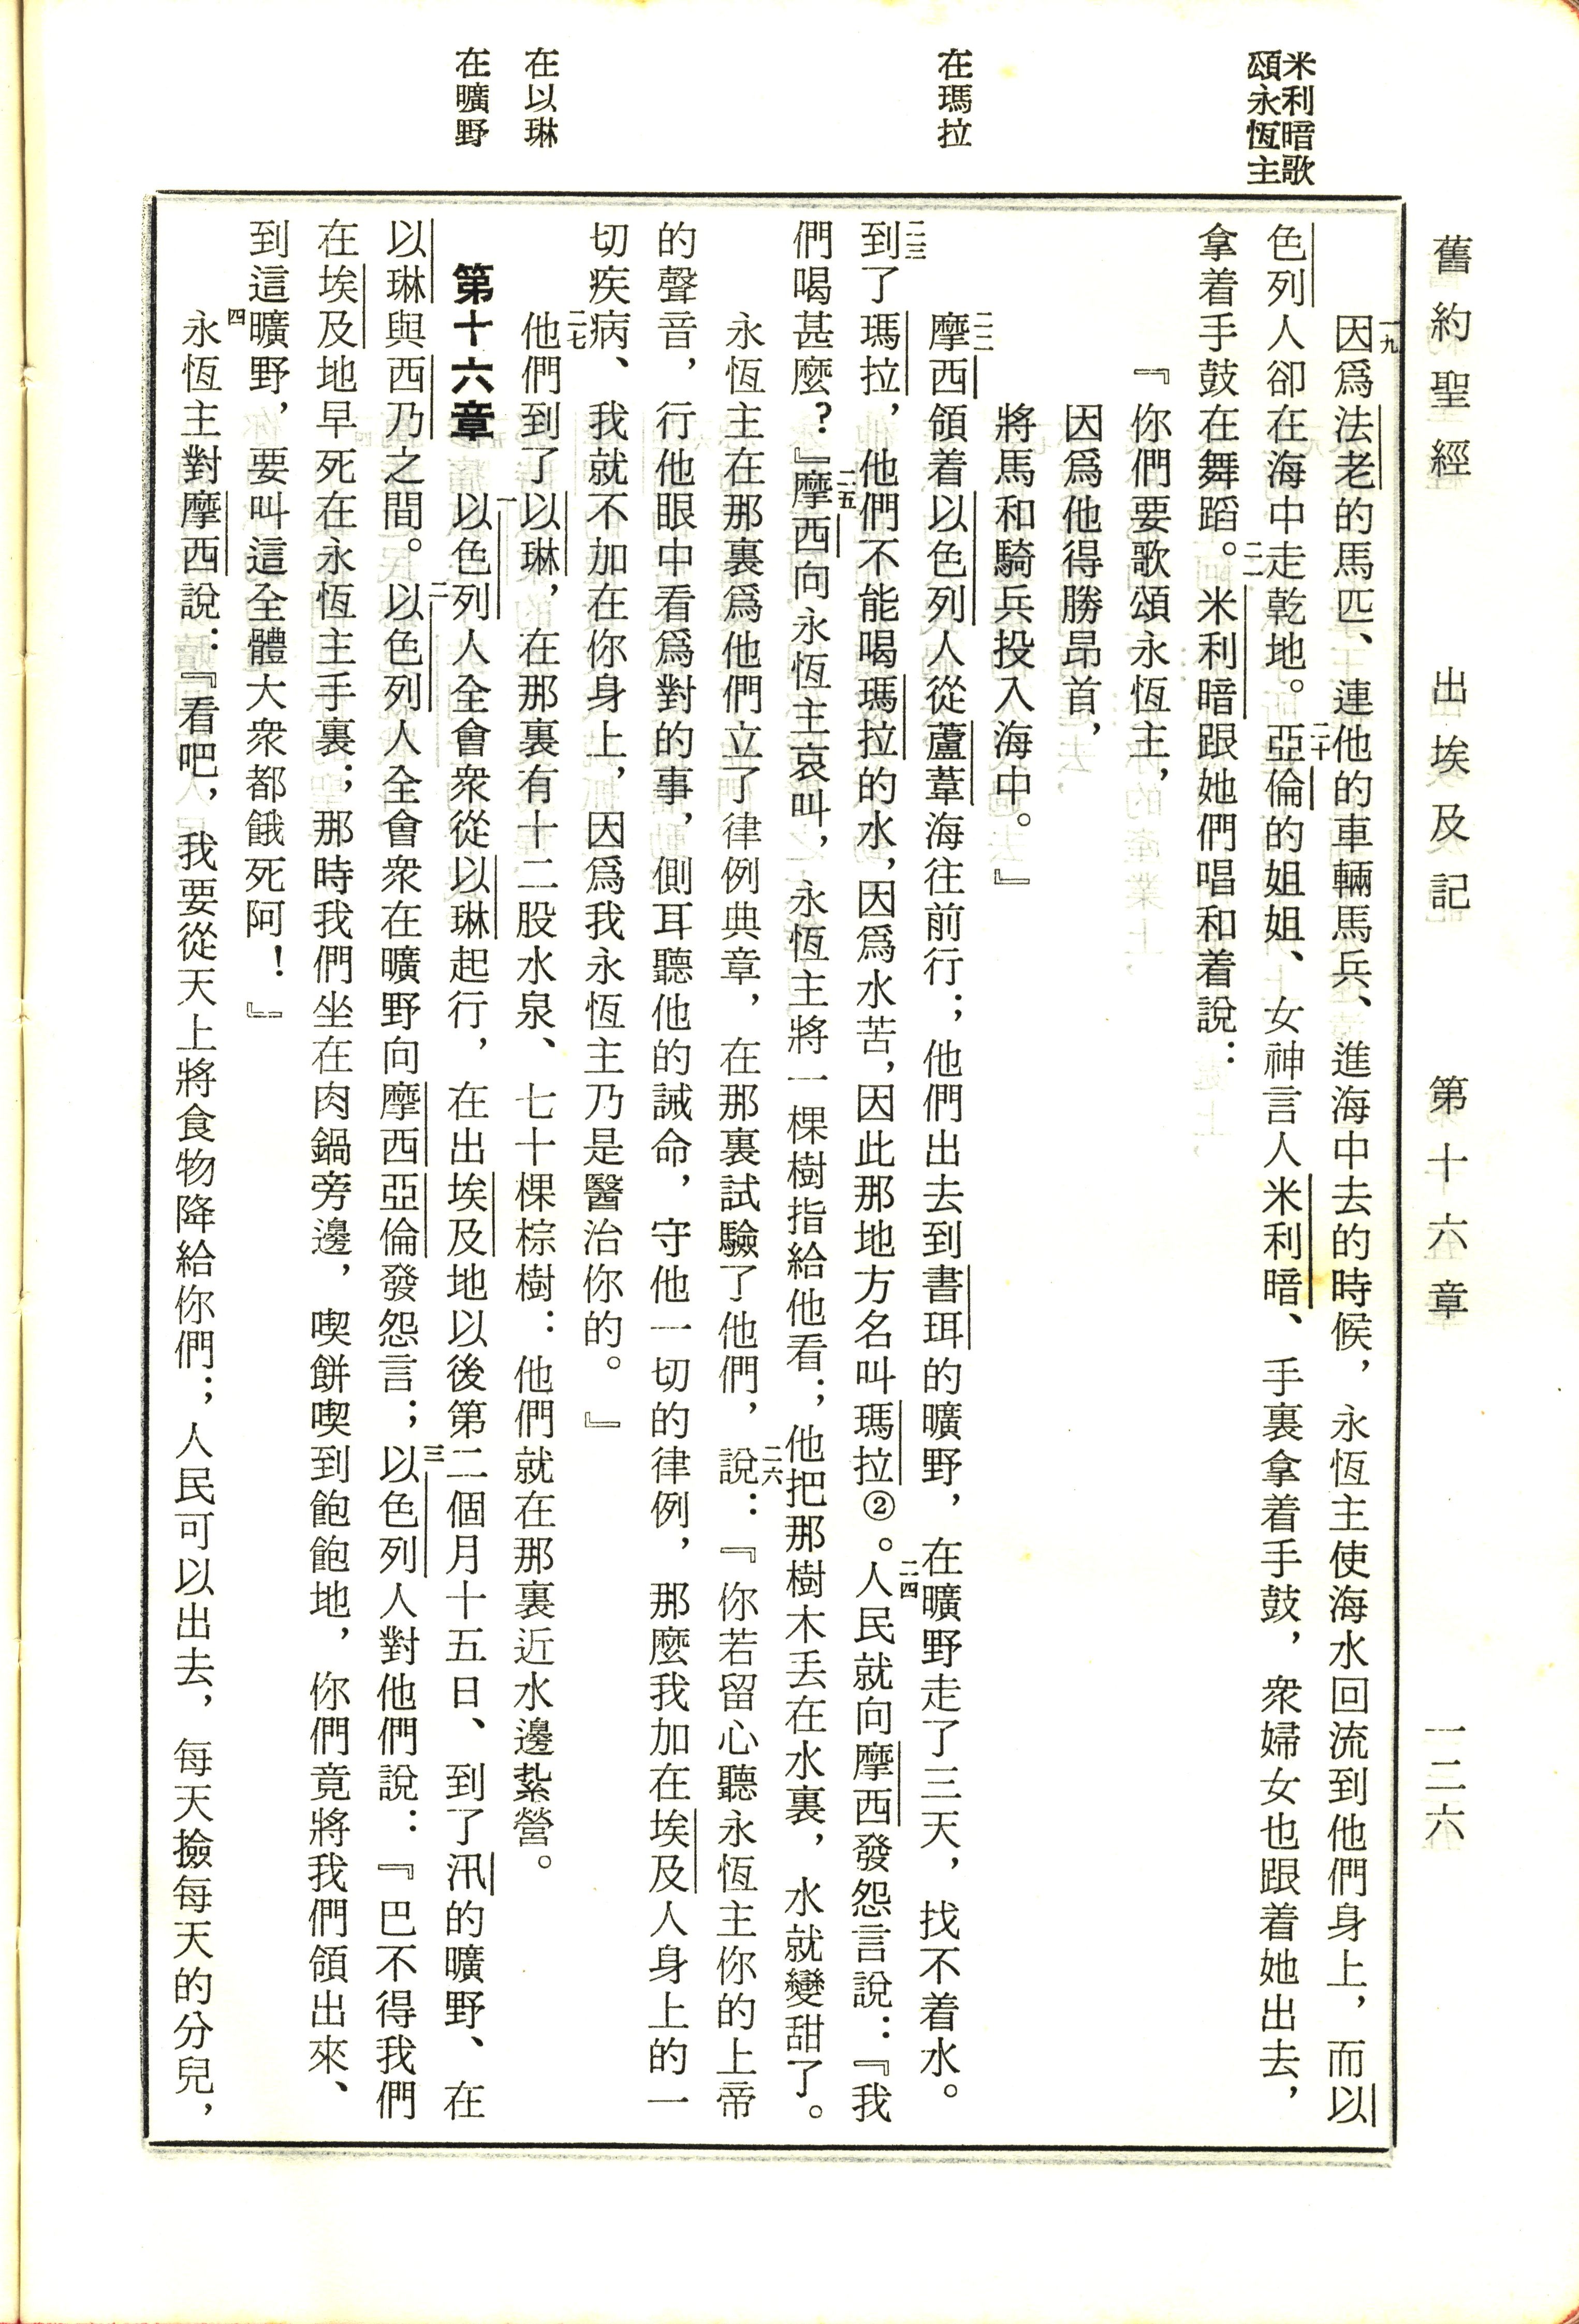 舊約聖經　出埃及記　第十六章　一二六
米利暗歌
頌永恆主
在瑪拉
在以琳
在曠野
一九因爲法老的馬匹、連他的車輛馬兵、進海中去的時候，永恆主使海水回流到他們身上，而以
色列人卻在海中走乾地。二十亞倫的姐姐、女神言人米利暗、手裏拿着手鼓，衆婦女也跟着她出去，
拿着手鼓在舞蹈。二一米利暗跟她們唱和着說：
『你們要歌頌永恆主，
因爲他得勝昂首，
將馬和騎兵投入海中。』
二二摩西領着以色列人從蘆葦海往前行；他們出去到書珥的曠野，在曠野走了三天，找不着水。
二三到了瑪拉，他們不能喝瑪拉的水，因爲水苦，因此那地方名叫瑪拉②。二四人民就向摩西發怨言說：『我
們喝甚麼？』二五摩西向永恆主哀叫，永恆主將一棵樹指給他看；他把那樹木丟在水裏，水就變甜了。
永恆主在那裏爲他們立了律例典章，在那裏試驗了他們，二六說：『你若留心聽永恆主你的上帝
的聲音，行他眼中看爲對的事，側耳聽他的誡命，守他一切的律例，那麼我加在埃及人身上的一
切疾病、我就不加在你身上，因爲我永恆主乃是醫治你的。』
二七他們到了以琳，在那裏有十二股水泉、七十棵棕樹：他們就在那裏近水邊紮營。
第十六章　一以色列人全會衆從以琳起行，在出埃及地以後第二個月十五日、到了汛的曠野、在
以琳與西乃之間。二以色列人全會衆在曠野向摩西亞倫發怨言；三以色列人對他們說：『巴不得我們
在埃及地早死在永恆主手裏；那時我們坐在肉鍋旁邊，喫餅喫到飽飽地，你們竟將我們領出來、
到這曠野，要叫這全體大衆都餓死阿！』
四永恆主對摩西說：『看吧，我要從天上將食物降給你們；人民可以出去，每天撿每天的分兒，